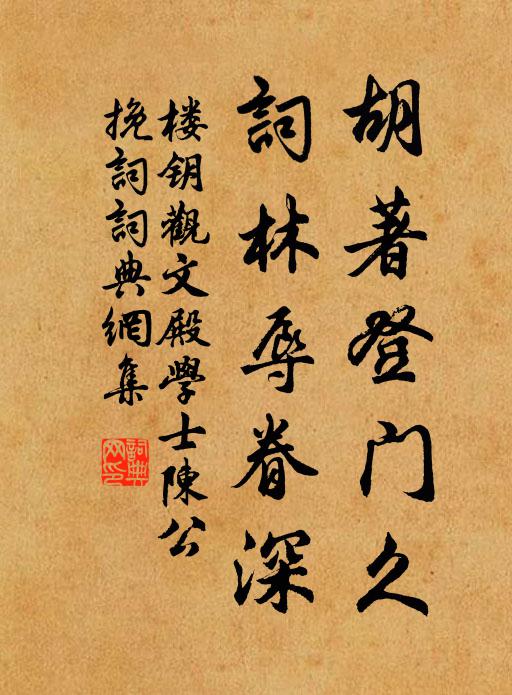 胡著登门久
詞林辱眷深
楼钥觀文殿學士陳公
挽詞詞典網集
詞典网印